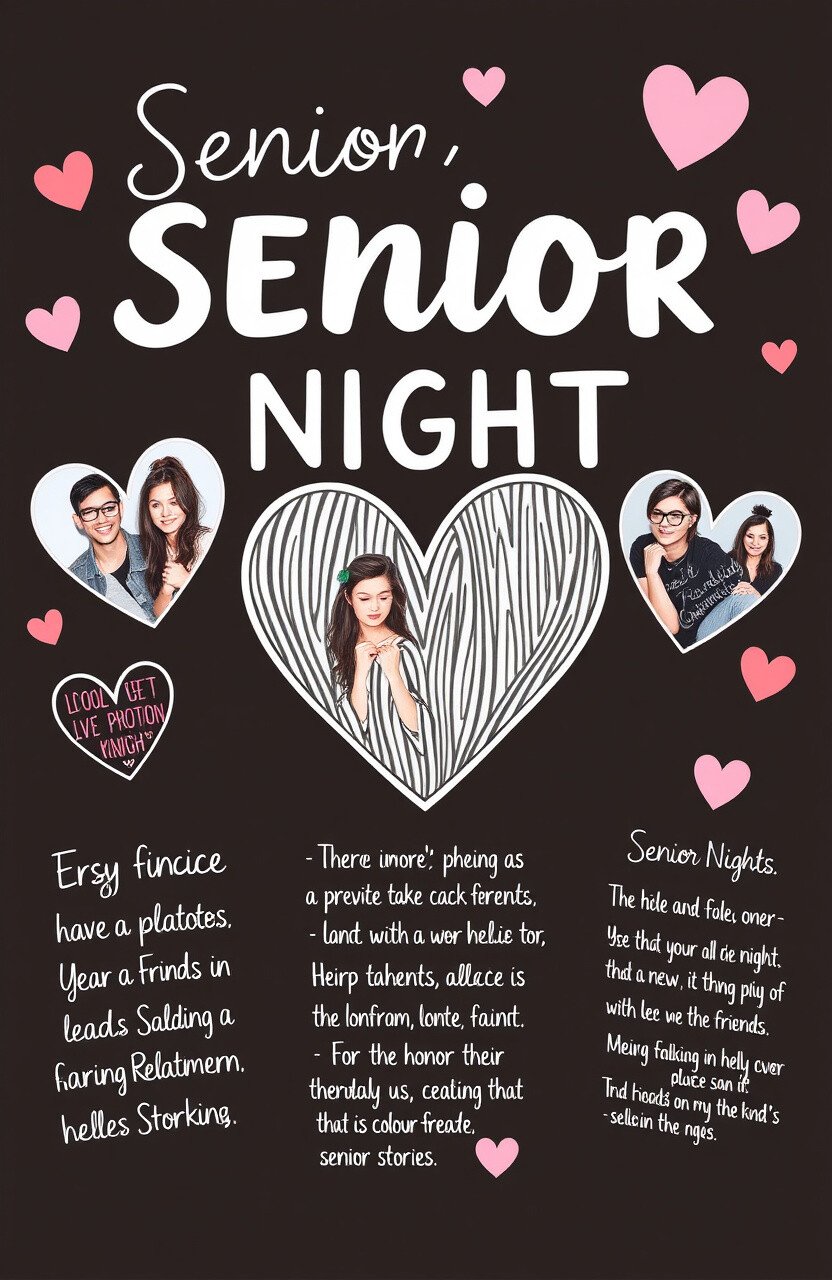 Senior,
SENIOR
NIGHT
LOOL BET
LVE PROTION
KINICH
Ersy fincice
have a platotes,
Year a Frinds in
leads Salding a
faring Relatmern,
helles Storking.
- There imore': pheing as
a previte take cack ferents,
- land with a wor helue tor,
Heirp tahents, allace is
the lonfram, lonte, faint.
- For the honor their
therdaly us, ceating that
that is colour freade,
senior stories.
Senior Nights.
The hile and foler oner-
Yse that your all de night.
thd a new, it thng piy of
with lee we the friends.
Meirg falking in helly cver
place san if
Tnd hoods on my the knd's
-sellein the nges.